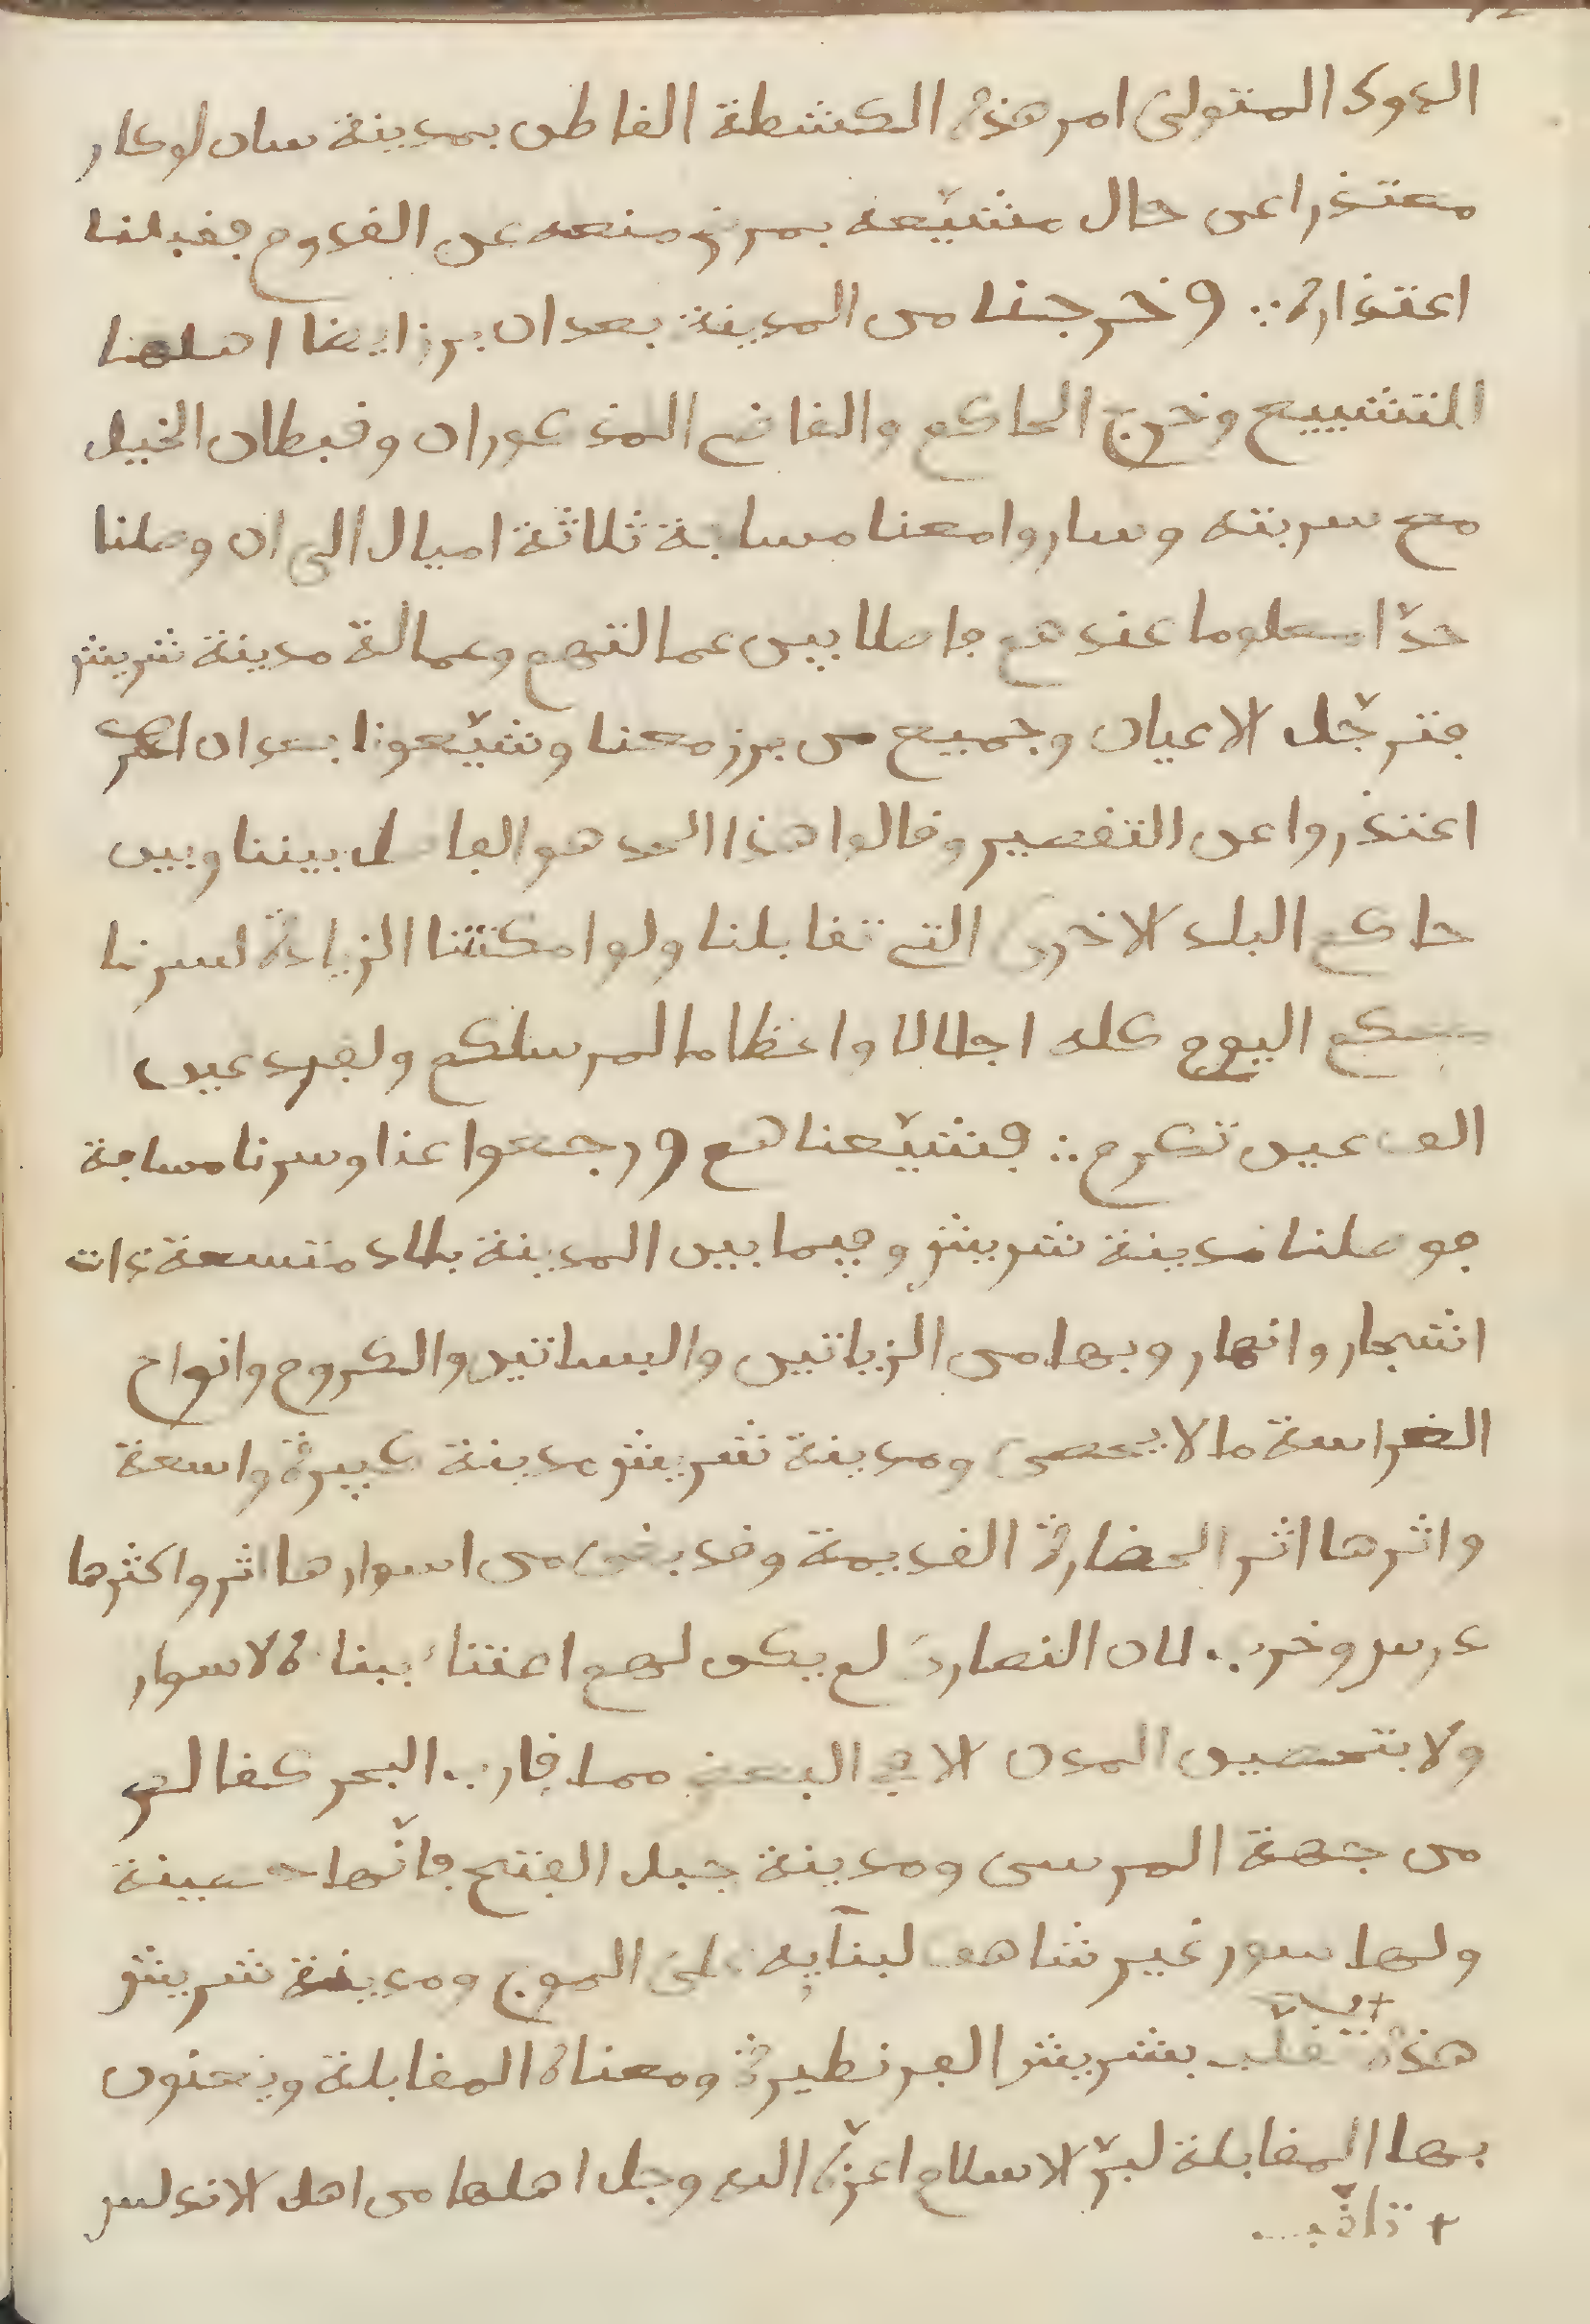 الدوك المتولى امر هذه الكشطة القاطن بمدينة سان لوكار
معتذرا عن حال مشيّعه بمرض منعه عن القدوم فقبلنا
اعتذاره ∴ وخرجنا من المدينة بعد ان برز ايضا اهلها
للتشييع وخرج الحاكم والقاضي المذكوران وقبطان الخيل
مع سربته وساروا معنا مسافة ثلاثة اميال الى ان وصلنا
حدّا معلوما عندهم فاصلا بين عمالتهم وعمالة مدينة شريش
فترجّل الاعيان وجميع من برز معنا وشيّعونا بعد ان
اعتذروا عن التقصير وقالوا هذا الحد هو الفاصل بيننا وبين
حاكم البلد الاخرى التي تقابلنا ولو امكنتنا الزيادة لسرنا
معكم اليوم كله اجلالا واعظاما لمرسلكم ولفرد عين
الف عين تكرم ∴ فشيّعناهم ورجعوا عنا وسرنا مسافة
فوصلنا مدينة شريش وفيما بين المدينة بلاد متسعة ذات
اشجار وانهار وبها من الزياتين والبساتين والكروم وانواع
الغراسة ما لا يحصى ومدينة شريش مدينة كبيرة واسعة
واثرها اثر الحضارة القديمة وقد بقى من اسوارها اثر واكثرها
درس وخرب لان النصارى لم يكن لهم اعتناء ببناء الاسوار
ولا بتحصين المدن الا في البعض مما قارب البحر كقالص
من جهة المرسى ومدينة جبل الفتح فانّها حصينة
ولها سور غير شاهق لبنآيه على الموج ومدينة شريش
هذه تلقب بشريش الفرنطيرة ومعناه المقابلة ويعنون
بها المقابلة لبرّ الاسلام اعزّه الله وجل اهلها من اهل الاندلس
+ تلقّب